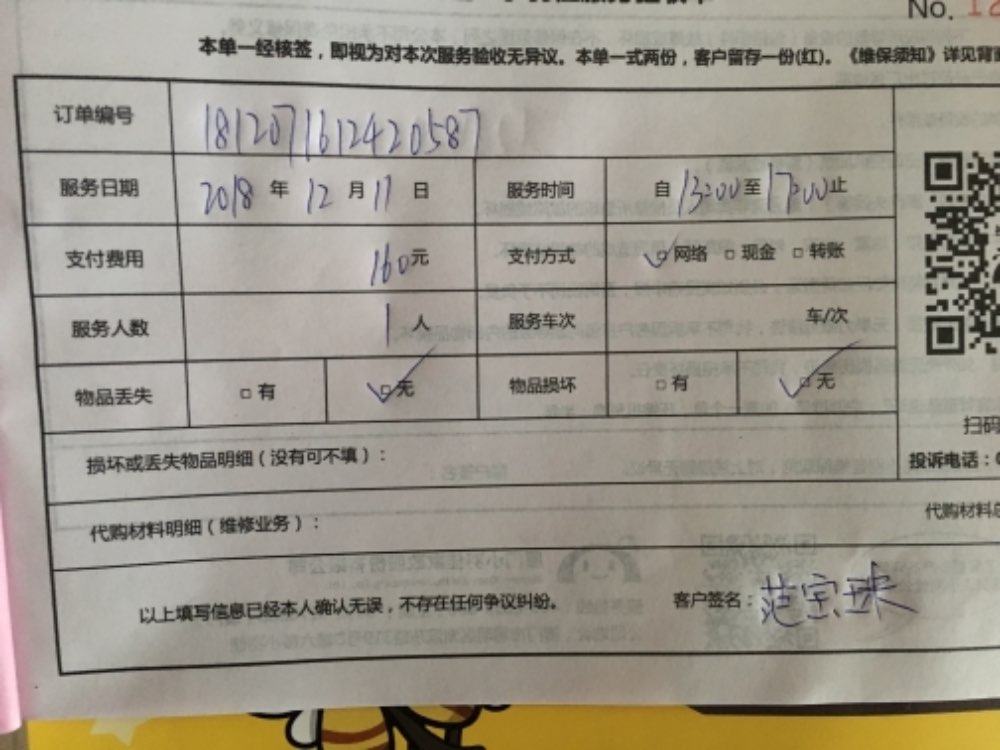 No. 12
本单一经核签，即视为对本次服务验收无异议。本单一式两份，客户留存一份(红)。《维保须知》详见背面
订单编号 181207161242 0587
服务日期 2018 年 12 月 11 日 服务时间 自 13:00 至 17:00 止
支付费用 160 元 支付方式 ☑网络 □现金 □转账
服务人数 1 人 服务车次 车/次
物品丢失 □有 ☑无 物品损坏 □有 ☑无
扫码
损坏或丢失物品明细（没有可不填）：
投诉电话：0
代购材料明细（维修业务）： 代购材料总
以上填写信息已经本人确认无误，不存在任何争议纠纷。 客户签名：范宝珠